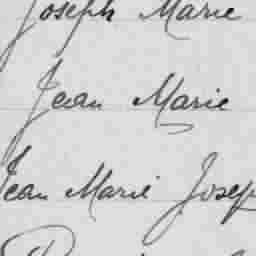 Joseph Marie
Jean Marie
Jean Marie Josep